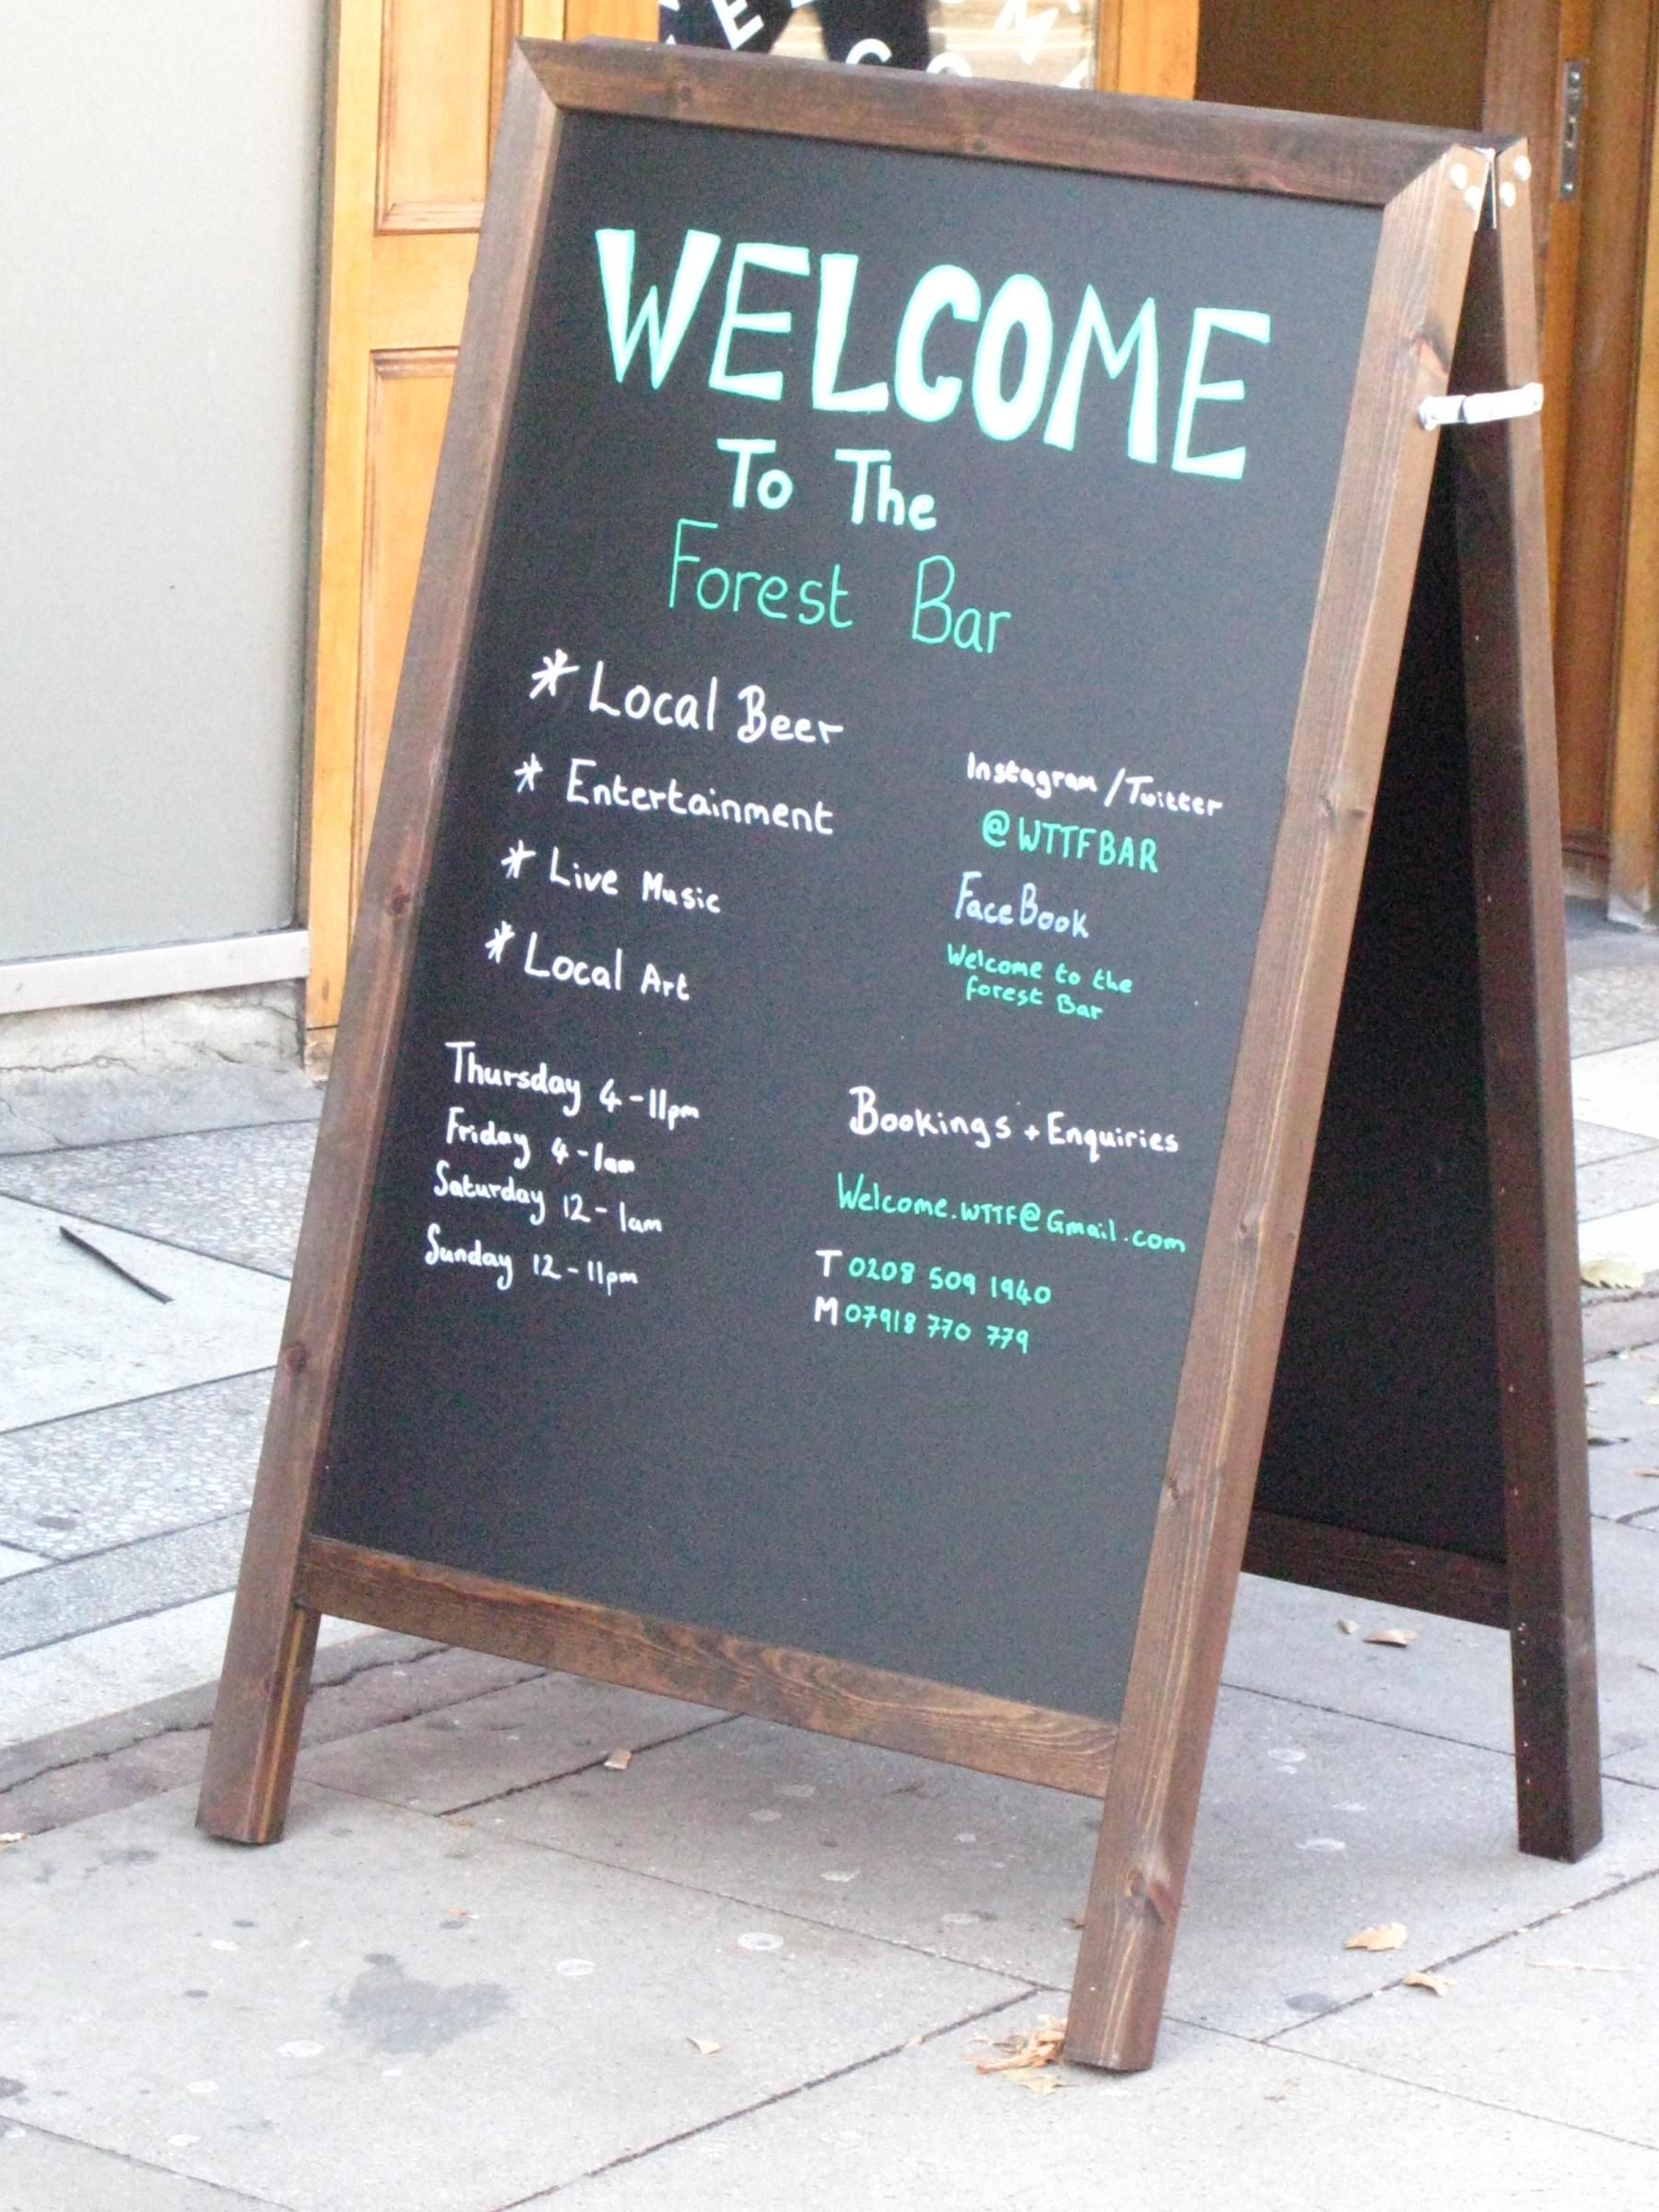 WELCOME
To The
Forest Bar
* Local Beer
* Entertainment
* Live Music
* Local Art
Instagram/Twitter
@WTTFBAR
FaceBook
Welcome to the
forest Bar
Thursday 4-11pm
Friday 4-1am
Saturday 12-1am
Sunday 12-11pm
Bookings + Enquiries
Welcome.WTTF@Gmail.com
T 0208 509 1940
M 07918 770 779